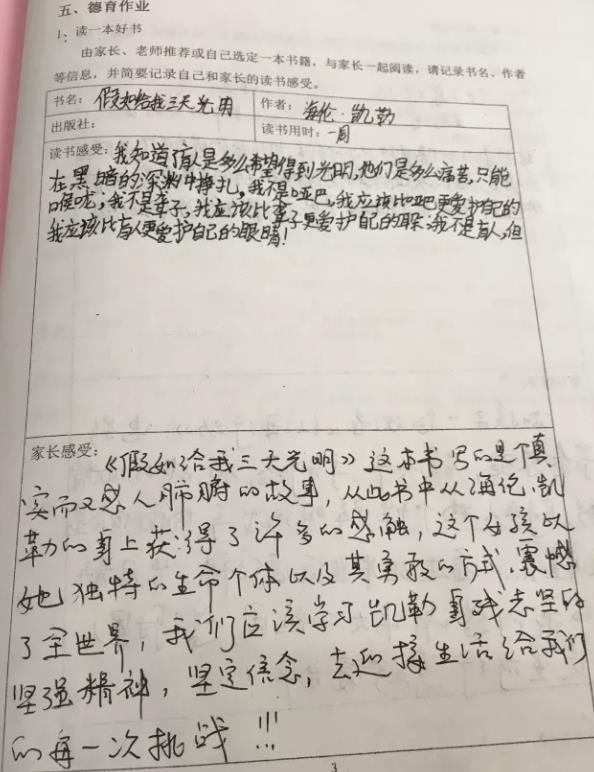 五、德育作业
1、读一本好书
由家长、老师推荐或自己选定一本书籍，与家长一起阅读，请记录书名、作者
等信息，并简要记录自己和家长的读书感受。
书名：假如给我三天光明 作者：海伦·凯勒
出版社： 读书用时：一周
读书感受：我知道了盲人是多么希望得到光明，他们是多么痛苦，只能
在黑暗的深渊中挣扎，我不是哑巴，我应该比哑巴更爱护自己的
喉咙，我不是聋子，我应该比聋子更爱护自己的耳朵；我不是盲人，但
我应该比盲人更爱护自己的眼睛！
家长感受：《假如给我三天光明》这本书写的是个真
实而又感人肺腑的故事，从此书中从海伦凯
勒的身上获得了许多的感触，这个女孩以
她独特的生命个体以及其勇敢的方式震憾
了全世界，我们应该学习凯勒身残志坚的
坚强精神，坚定信念，去迎接生活给我们
的每一次挑战!!!
3